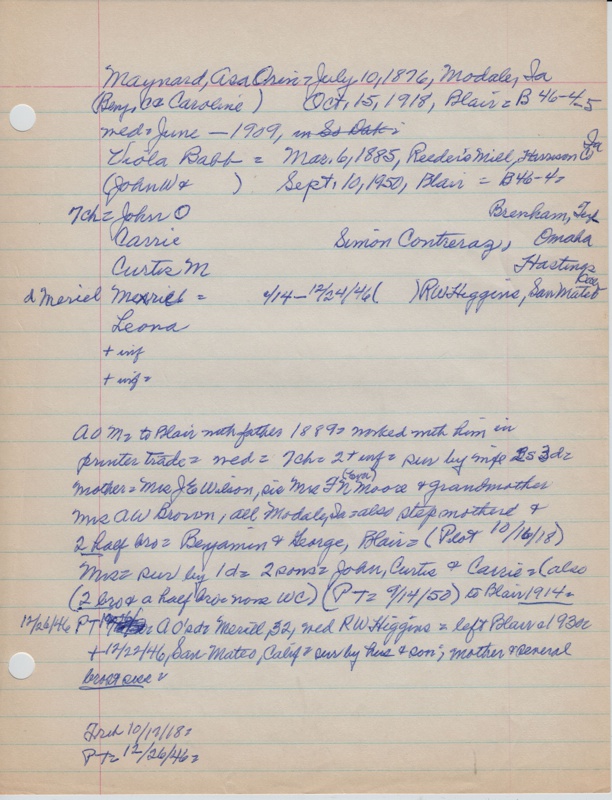 Maynard, Asa Orin = July 10, 1876, Modale, Ia
(Benj. & Caroline) Oct. 15, 1918, Blair = B 46-4-5
wed = June - 1909, in So Dak =
Viola Babb = Mar. 6, 1885, Reeder's Mill, Harrison Co Ia
(John W & ) Sept. 10, 1950, Blair = B46-4=
7ch = John O Brenham, Tex
Carrie Simon Contreraz, Omaha
Curtis M Hastings
d Meriel = 4/14 - 12/24/46 ( ) RW Higgins, San Mateo Cal
Leona
+ inf
+ inf =
A O M = to Blair with father 1889 = worked with him in
printer trade = wed = 7ch = 2 + inf = sur by wife 2s 3d =
mother = Mrs J E Wilson, sis Mrs F N Moore & grandmother
Mrs A W Brown, all Modale, Ia = also stepmother &
2 half bro = Benjamin & George, Blair = (Pilot 10/16/18)
Mrs = sur by 1d = 2 sons = John, Curtis & Carrie = (also
(2 bro & a half bro = none WC) (PT = 9/14/50) to Blair 1914 =
12/26/46 PT A O's d = Meriel, 32, wed RW Higgins = left Blair c 1930 =
+ 12/22/46, San Mateo, Calif = sur by hus & son; mother & several
bro & sis =
Trib 10/17/18 =
PT = 12/26/46 =